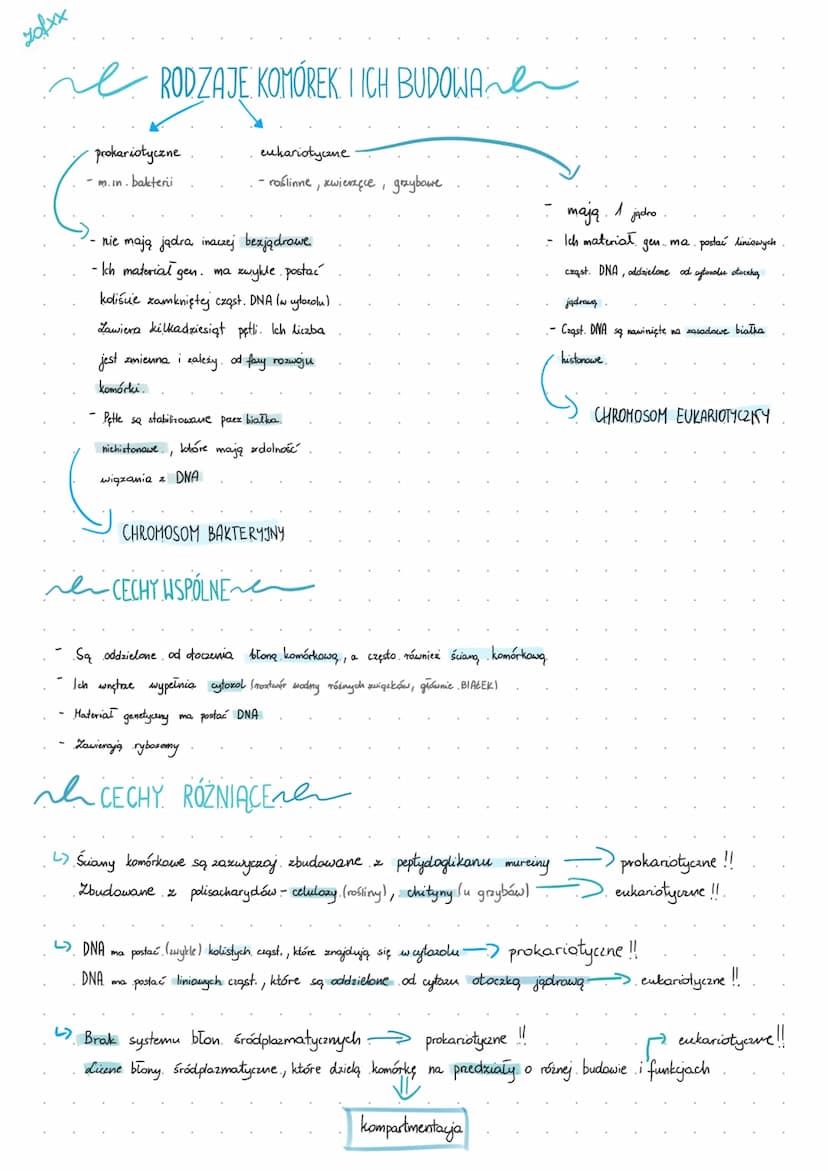 zofxx
RODZAJE KOMÓREK I ICH BUDOWA
prokariotyczne
- m.in. bakterii
eukariotyczne
- roślinne, zwierzęce, grzybowe
- nie mają jądra inaczej bezjądrowe
- Ich materiał gen. ma zwykle postać
koliście zamkniętej cząst. DNA (w cytozolu)
Zawiera kilkadziesiąt pętli. Ich liczba
jest zmienna i zależy od fazy rozwoju
komórki.
- Pętle są stabilizowane przez białka
niehistonowe, które mają zdolność
wiązania z DNA
CHROMOSOM BAKTERYJNY
- mają 1 jądro
- Ich materiał gen. ma postać liniowych
cząst. DNA, oddzielone od cytozolu otoczką
jądrową
- Cząst. DNA są nawinięte na zasadowe białka
histonowe.
CHROMOSOM EUKARIOTYCZNY
CECHY WSPÓLNE
- Są oddzielone od otoczenia błoną komórkową, a często również ścianą komórkową
- Ich wnętrze wypełnia cytozol (roztwór wodny różnych związków, głównie BIAŁEK)
- Materiał genetyczny ma postać DNA
- Zawierają rybosomy
CECHY RÓŻNIĄCE
↳ Ściany komórkowe są zazwyczaj zbudowane z peptydoglikanu mureiny → prokariotyczne !!
Zbudowane z polisacharydów - celulozy (rośliny), chityny (u grzybów) → eukariotyczne !!
↳ DNA ma postać (zwykle) kolistych cząst., które znajdują się w cytozolu → prokariotyczne !!
DNA ma postać liniowych cząst., które są oddzielone od cytozu otoczką jądrową → eukariotyczne !!
↳ Brak systemu błon śródplazmatycznych → prokariotyczne !!
eukariotyczne !!
Liczne błony śródplazmatyczne, które dzielą komórkę na przedziały o różnej budowie i funkcjach
kompartmentacja